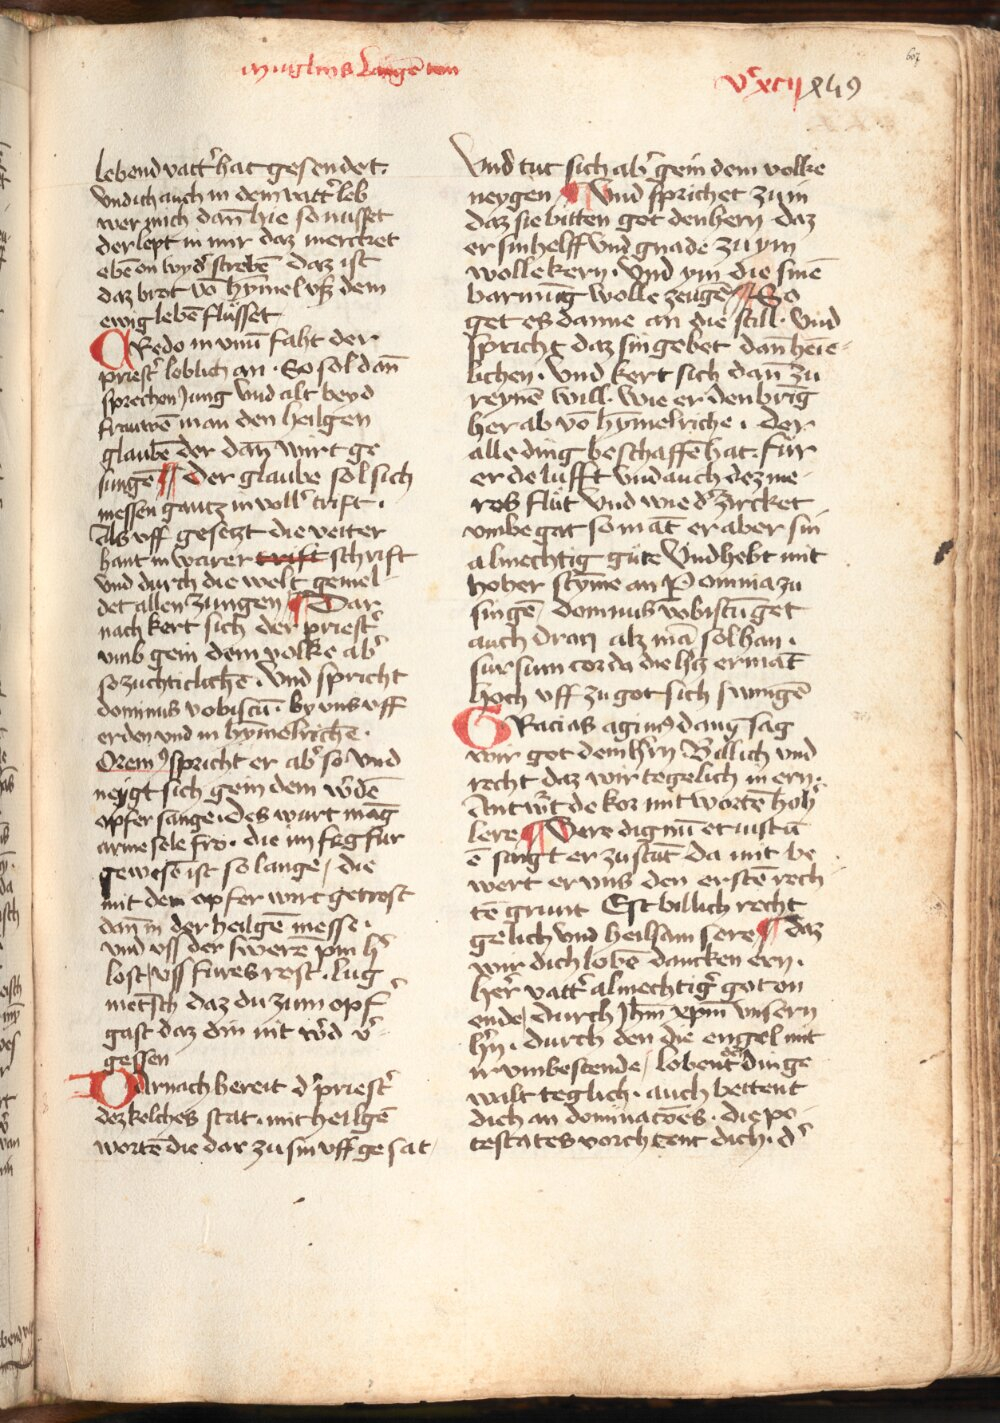 607
muglins Langē ton
Vᶜxcij x49
lebend vatt̕ hat gesendet.
vnd ich auch in dem vatt̕ leb
wer mich dañ hie so nusset
der lept in mir daz merctet
ebē on wyd̕ strebē daz ist
daz brot vō hȳmel vß dem
ewig lebē flüsset
CRedo in vnū faht der
priest̕ loblich an. So sol dañ
sprechen Jung vnd alt beyd
frauwē man den heilgen
glaubē der dañ wirt ge
sungē ¶ Der glaube sol sich
messen gantz in voll̕ trift.
Als vff gesetzt die veiter
hant in warer trift schrift
vnd durch die welt gemel-
det allen zungen ¶ Dar
nach kert sich der priest̕
vmb gein dem volke ab̕
so zuchticlichē. Vnd spricht
dominus vobiscū. by vns vff
erden vnd in hȳmelrichē.
Oremꝰ spricht er ab̕ so vnd
neygt sich gein dem w̕dē
opfer sange. des wart māg
arme sele fro. die im feg fur
gewesē ist so lange, die
mit dem opfer wirt getrost
dañ in der heilgē messe.
vnd vss der swerē pin h̕
lost, vss fures rost. lug
metsch daz du zum opf̕
gast daz din nit w̕d v̕-
gessen
DArnach bereit d̕ priest̕
dez kelches stat. mit heilgē
wortē die dar zu sin vff gesat,
Vnd tut sich ab̕ gein dem volke
neygen ¶ Vnd sprichet zu in
daz sie bitten got den hern daz
er sin helff vnd gnade zu ym
wolle kern. vnd ym die sinē
barmūg wolle zeugē ¶ So
get es danne an die still. vnd
spricht daz sin gebet dañ heīe-
lichen. vnd kert sich dañ zu
reynē will. wie er den brīg
her ab vō hȳmelriche. der
alle ding beschaffē hat. für
er de lufft vnd auch dez me-
res flüt vnd wie d̕ zircket
vmbe gat so māt er aber sin
almechtig güte vnd hebt mit
hoher styme an P omnia zu
singē, dominus vobiscū get
auch dran alz mā sol han.
sursum corda die h̕tz ermāt
hoch vff zu got sich swingē
GRacias agimꝰ danꝗ sag
wir got dem h̕rn Billich vnd
recht daz wir tegelich in ern.
Antw̕t de kor mit wortē hoh̕
lere ¶ Vere dignū et iustū
ē sangt er zu stāt da mit be
wert er vns den erstē rech
tē grunt Est billich recht
gelich vnd heilsam sere ¶ daz
wir dich lobē dancken ern.
her̕ vatt̕ almechtig̕ got on
ende, durch Jhm̄ xpm̄ vnsern
h̕n. durch den die engel mit
ir vmbestende, lobent din ge
walt teglich. auch bettent
dich an dominatoēs. die po-
testates vorchtent dich. d̕